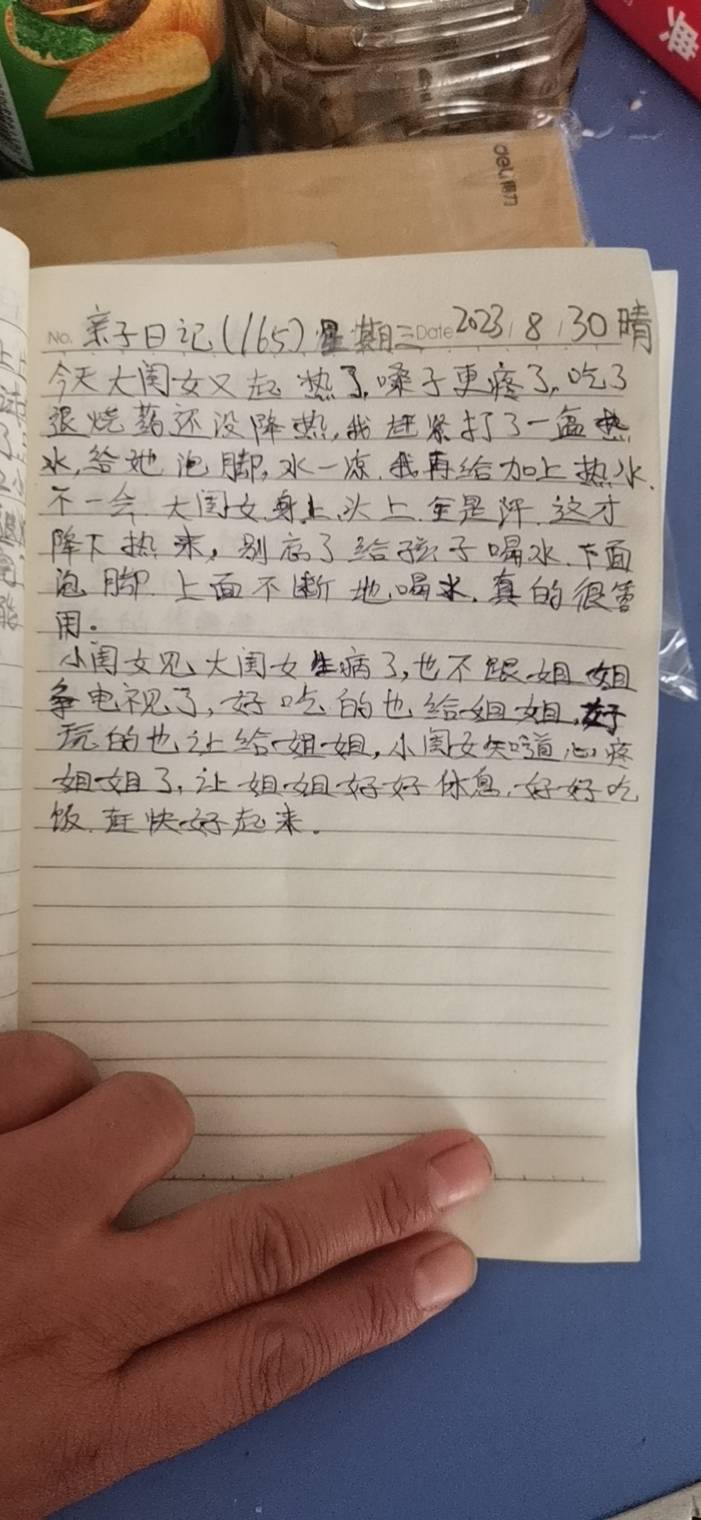 典
deli 得力
No. 亲子日记(165) 星期三 Date 2023 / 8 / 30 晴
今天大闺女又起热了,嗓子更疼了,吃了
退烧药还没降热,我赶紧打了一盆热
水,给她泡脚,水一凉,我再给加上热水.
不一会,大闺女身上、头上全是汗,这才
降下热来,别忘了给孩子喝水,下面
泡脚,上面不断地喝水,真的很管
用。
小闺女见大闺女生病了,也不跟姐姐
争电视了,好吃的也给姐姐,好
玩的也让给姐姐,小闺女知道心疼
姐姐了,让姐姐好好休息,好好吃
饭,赶快好起来。